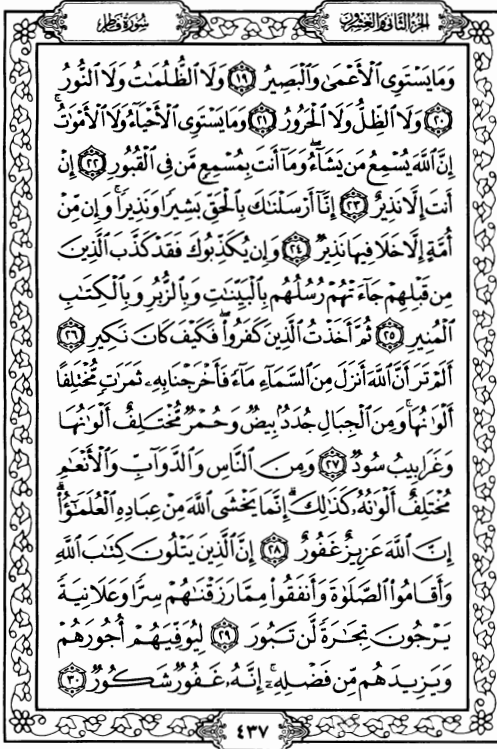 الجزء الثاني والعشرون
سورة فاطر
وَمَا يَسْتَوِي الْأَعْمَىٰ وَالْبَصِيرُ ١٩ وَلَا الظُّلُمَاتُ وَلَا النُّورُ
٢٠ وَلَا الظِّلُّ وَلَا الْحَرُورُ ٢١ وَمَا يَسْتَوِي الْأَحْيَاءُ وَلَا الْأَمْوَاتُ ۚ
إِنَّ اللَّهَ يُسْمِعُ مَن يَشَاءُ ۖ وَمَا أَنتَ بِمُسْمِعٍ مَّن فِي الْقُبُورِ ٢٢ إِنْ
أَنتَ إِلَّا نَذِيرٌ ٢٣ إِنَّا أَرْسَلْنَاكَ بِالْحَقِّ بَشِيرًا وَنَذِيرًا ۚ وَإِن مِّنْ
أُمَّةٍ إِلَّا خَلَا فِيهَا نَذِيرٌ ٢٤ وَإِن يُكَذِّبُوكَ فَقَدْ كَذَّبَ الَّذِينَ
مِن قَبْلِهِمْ جَاءَتْهُمْ رُسُلُهُم بِالْبَيِّنَاتِ وَبِالزُّبُرِ وَبِالْكِتَابِ
الْمُنِيرِ ٢٥ ثُمَّ أَخَذْتُ الَّذِينَ كَفَرُوا ۖ فَكَيْفَ كَانَ نَكِيرِ ٢٦
أَلَمْ تَرَ أَنَّ اللَّهَ أَنزَلَ مِنَ السَّمَاءِ مَاءً فَأَخْرَجْنَا بِهِ ثَمَرَاتٍ مُّخْتَلِفًا
أَلْوَانُهَا ۚ وَمِنَ الْجِبَالِ جُدَدٌ بِيضٌ وَحُمْرٌ مُّخْتَلِفٌ أَلْوَانُهَا
وَغَرَابِيبُ سُودٌ ٢٧ وَمِنَ النَّاسِ وَالدَّوَابِّ وَالْأَنْعَامِ
مُخْتَلِفٌ أَلْوَانُهُ كَذَٰلِكَ ۗ إِنَّمَا يَخْشَى اللَّهَ مِنْ عِبَادِهِ الْعُلَمَٰٓؤُا ۗ
إِنَّ اللَّهَ عَزِيزٌ غَفُورٌ ٢٨ إِنَّ الَّذِينَ يَتْلُونَ كِتَابَ اللَّهِ
وَأَقَامُوا الصَّلَوٰةَ وَأَنفَقُوا مِمَّا رَزَقْنَاهُمْ سِرًّا وَعَلَانِيَةً
يَرْجُونَ تِجَارَةً لَّن تَبُورَ ٢٩ لِيُوَفِّيَهُمْ أُجُورَهُمْ
وَيَزِيدَهُم مِّن فَضْلِهِ ۚ إِنَّهُ غَفُورٌ شَكُورٌ ٣٠
٤٣٧